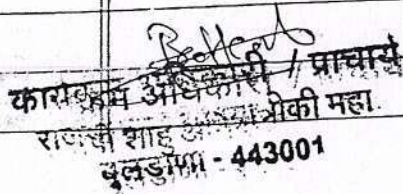 कार्यक्रम अधिकारी / प्राचार्य
राजर्षी शाहू महा.
बुलडाणा - 443001